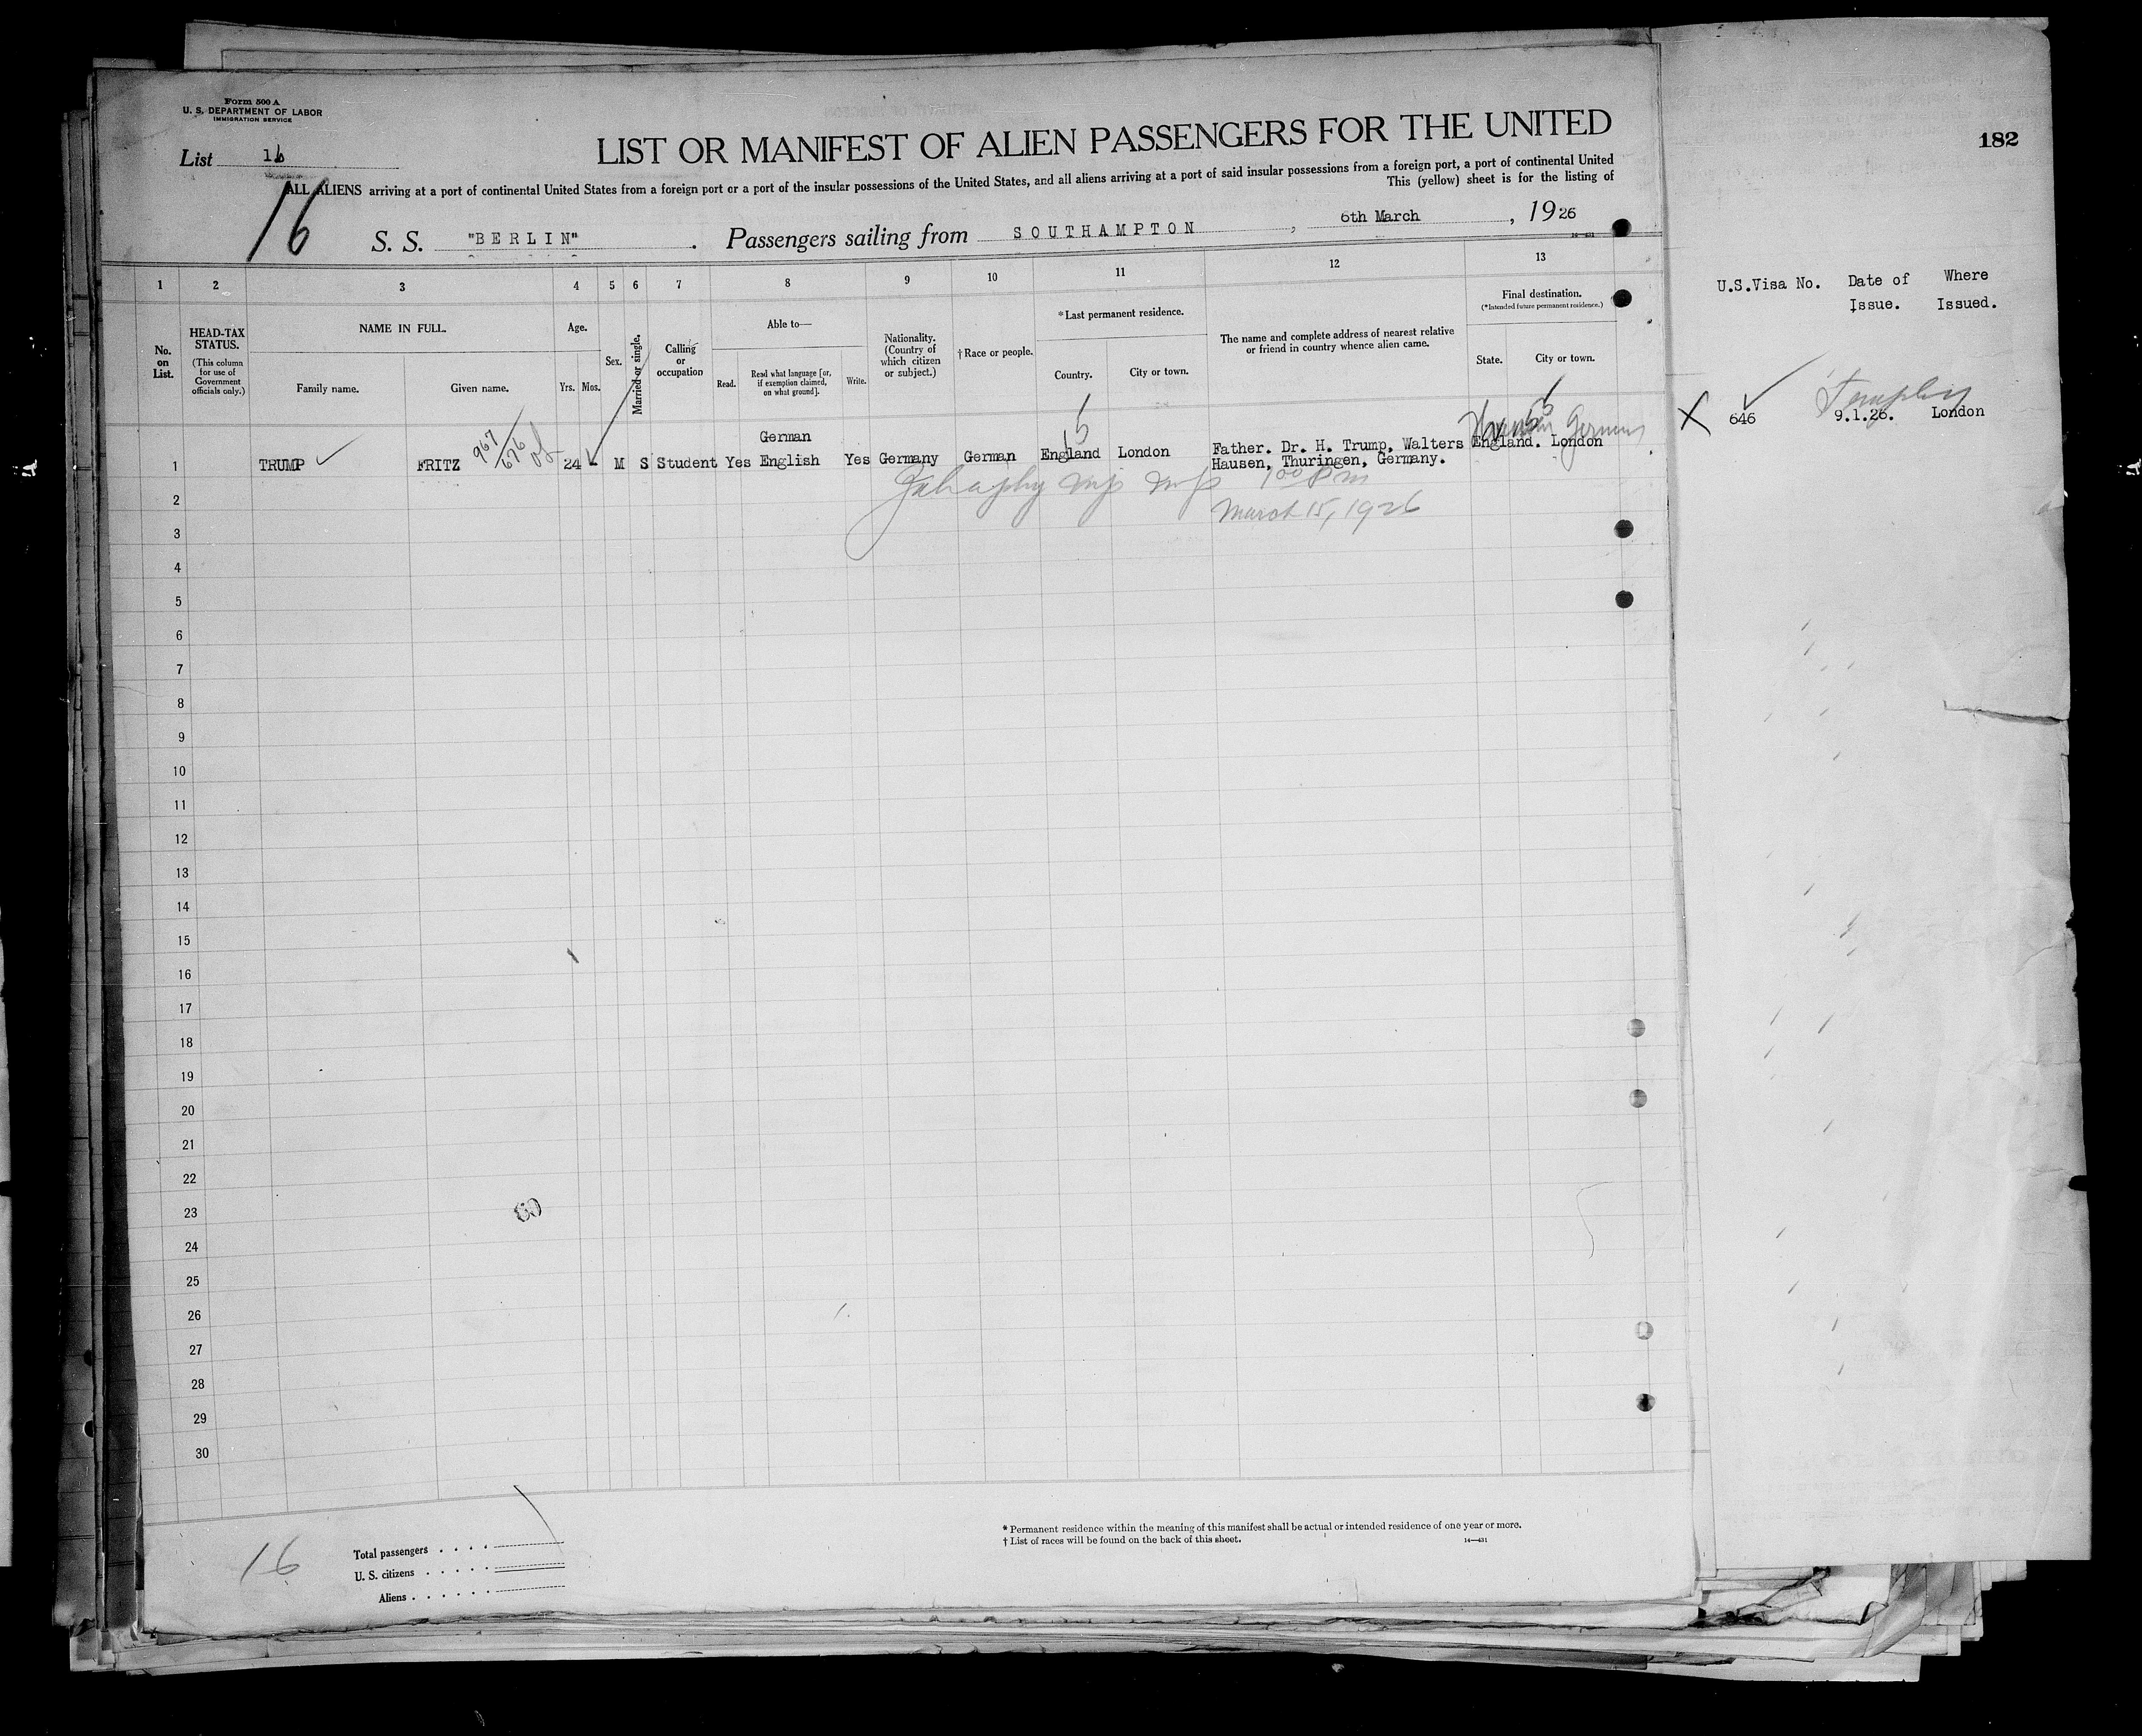 Form 500 A
U. S. DEPARTMENT OF LABOR
IMMIGRATION SERVICE
182
List 16
LIST OR MANIFEST OF ALIEN PASSENGERS FOR THE UNITED
ALL ALIENS arriving at a port of continental United States from a foreign port or a port of the insular possessions of the United States, and all aliens arriving at a port of said insular possessions from a foreign port, a port of continental United
This (yellow) sheet is for the listing of
16
S. S. "BERLIN" . Passengers sailing from SOUTHAMPTON , 6th March , 1926
1 2 3 4 5 6 7 8 9 10 11 12 13
No. on List.
HEAD-TAX STATUS.
(This column for use of Government officials only.)
NAME IN FULL.
Family name. Given name.
Age.
Yrs. Mos.
Sex.
Married or single.
Calling or occupation
Able to—
Read. Read what language [or, if exemption claimed, on what ground]. Write.
Nationality. (Country of which citizen or subject.)
† Race or people.
*Last permanent residence.
Country. City or town.
The name and complete address of nearest relative or friend in country whence alien came.
Final destination.
(*Intended future permanent residence.)
State. City or town.
U.S.Visa No. Date of Issue. Where Issued.
967/676
1 TRUMP FRITZ 24 - M S Student Yes German English Yes Germany German England London Father. Dr. H. Trump, Walters Hausen, Thuringen, Germany. England. London
646 9.1.26. London
Germany
1 00 Pm
March 15, 1926
2
3
4
5
6
7
8
9
10
11
12
13
14
15
16
17
18
19
20
21
22
23
24
25
26
27
28
29
30
16
Total passengers . . . .
U. S. citizens . . . . .
Aliens . . . . . .
* Permanent residence within the meaning of this manifest shall be actual or intended residence of one year or more.
† List of races will be found on the back of this sheet.
14—431